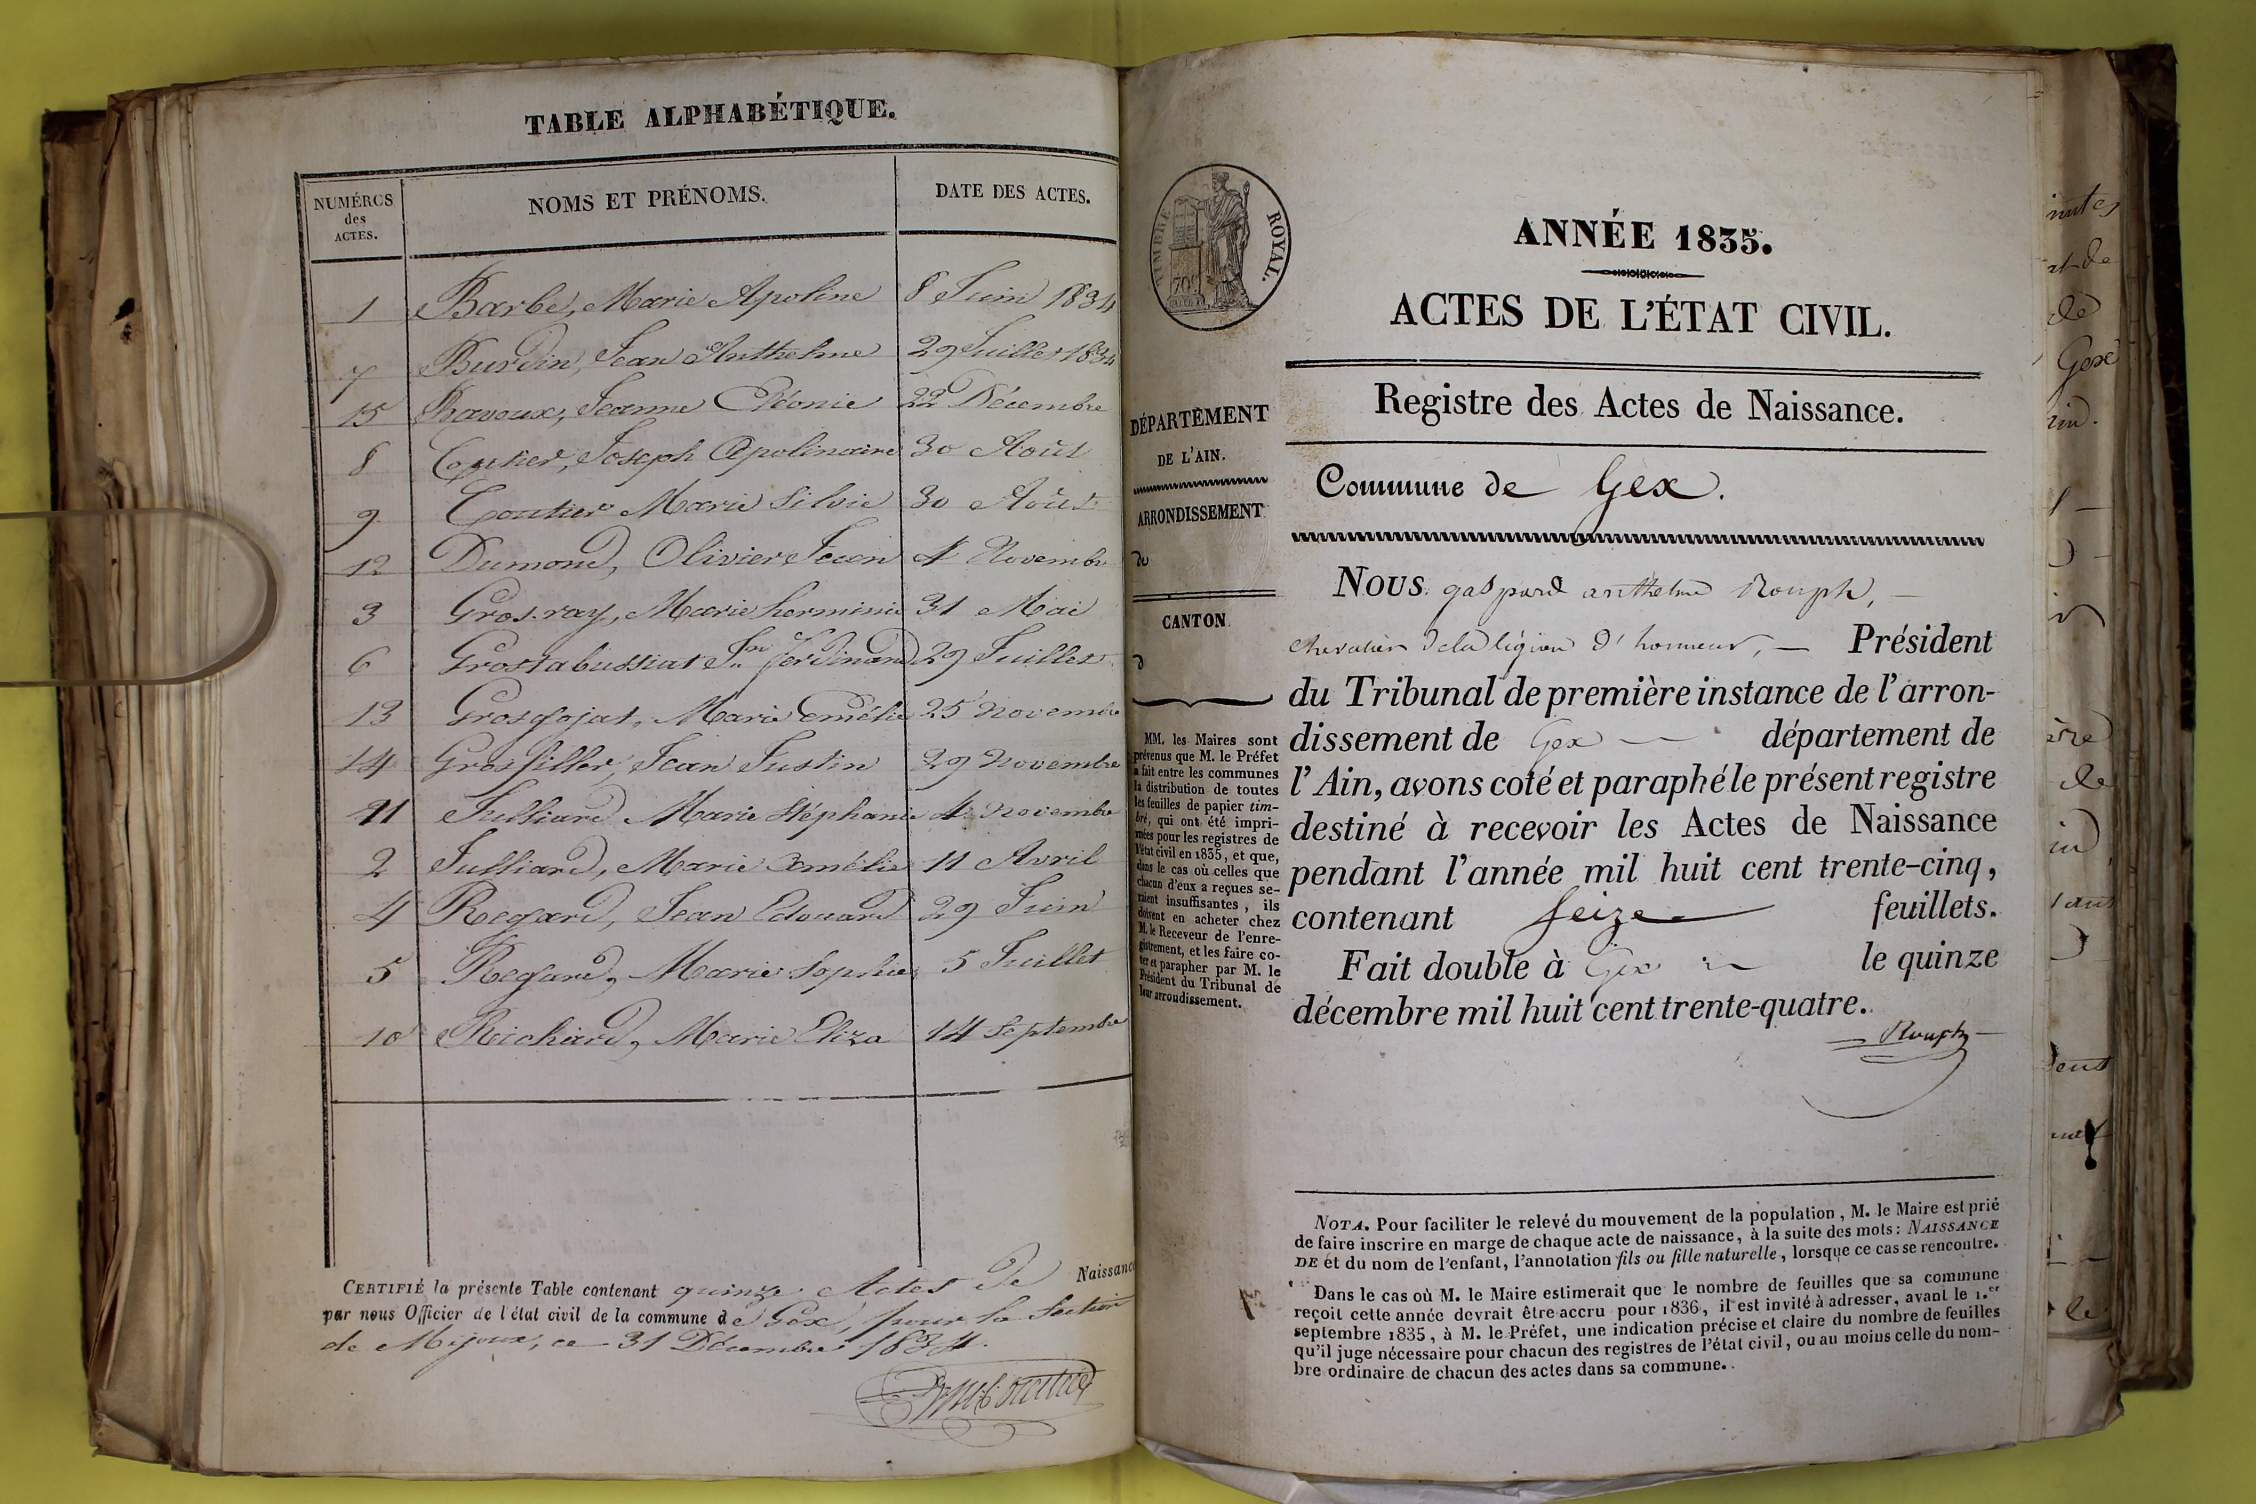 TABLE ALPHABÉTIQUE.
NUMÉROS des ACTES. NOMS ET PRÉNOMS. DATE DES ACTES.
1 Barbe, Marie Apoline 8 Juin 1834
7 Burdin, Jean Anthelme 29 Juillet 1834
15 Chavoux, Jeanne Cléonie 22 Décembre
8 Coutier, Joseph Apolinaire 30 Août
9 Coutier Marie Silvie 30 Août
12 Dumond, Olivier Jean 4 Novembre
3 Gros-ray, Marie herminie 31 Mai
6 Grostabussiat Jn. ferdinand 29 Juillet
13 Grosgojat, Marie emélie 25 Novembre
14 Grosfiller, Jean Justin 29 Novembre
11 Julliard Marie Stéphanie 4 Novembre
2 Julliard, Marie Amélie 11 Avril
4 Regard, Jean Edouard 29 Juin
5 Regard, Marie Sophie 5 Juillet
10 Richard, Marie Eliza 14 Septembre
CERTIFIÉ la présente Table contenant quinze Actes de Naissance
par nous Officier de l'état civil de la commune de Gex, pour la Section
de Mijoux, ce 31 Décembre 1834.
TIMBRE ROYAL.
70c
DÉPARTEMENT
DE L'AIN.
ARRONDISSEMENT
de
CANTON
d
MM. les Maires sont
prévenus que M. le Préfet
a fait entre les communes
la distribution de toutes
les feuilles de papier tim-
bré, qui ont été impri-
mées pour les registres de
l'état civil en 1835, et que,
dans le cas où celles que
chacun d'eux a reçues se-
raient insuffisantes, ils
doivent en acheter chez
M. le Receveur de l'enre-
gistrement, et les faire co-
ter et parapher par M. le
Président du Tribunal de
leur arrondissement.
ANNÉE 1835.
ACTES DE L'ÉTAT CIVIL.
Registre des Actes de Naissance.
Commune de Gex.
NOUS gaspard anthelme Rouph,
chevalier de la légion d'honneur, — Président
du Tribunal de première instance de l'arron-
dissement de Gex département de
l'Ain, avons coté et paraphé le présent registre
destiné à recevoir les Actes de Naissance
pendant l'année mil huit cent trente-cinq,
contenant seize feuillets.
Fait double à Gex le quinze
décembre mil huit cent trente-quatre.
Rouph
NOTA. Pour faciliter le relevé du mouvement de la population, M. le Maire est prié
de faire inscrire en marge de chaque acte de naissance, à la suite des mots: NAISSANCE
DE et du nom de l'enfant, l'annotation fils ou fille naturelle, lorsque ce cas se rencontre.
Dans le cas où M. le Maire estimerait que le nombre de feuilles que sa commune
reçoit cette année devrait être accru pour 1836, il est invité à adresser, avant le 1.er
septembre 1835, à M. le Préfet, une indication précise et claire du nombre de feuilles
qu'il juge nécessaire pour chacun des registres de l'état civil, ou au moins celle du nom-
bre ordinaire de chacun des actes dans sa commune.